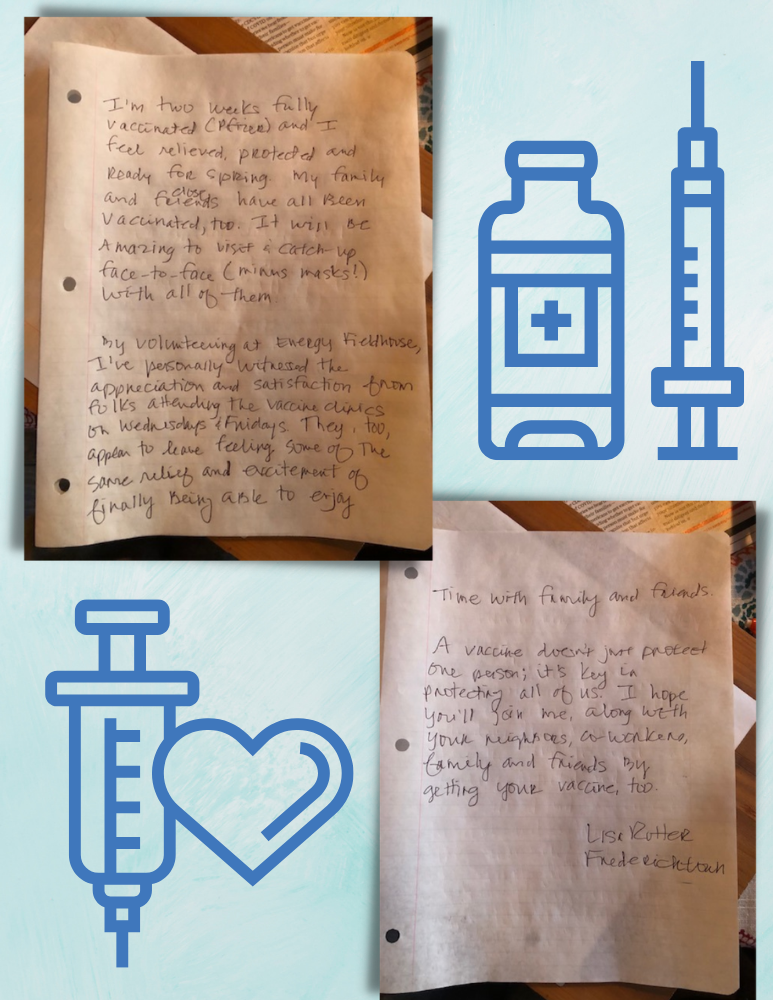 I'm two weeks fully
vaccinated (Pfizer) and I
feel relieved, protected and
ready for spring. My family
and close friends have all been
vaccinated, too. It will be
amazing to visit & catch-up
face-to-face (minus masks!)
with all of them.
By volunteering at Energy Fieldhouse,
I've personally witnessed the
appreciation and satisfaction from
folks attending the vaccine clinics
on Wednesdays & Fridays. They, too,
appear to leave feeling some of the
same relief and excitement of
finally being able to enjoy
Time with family and friends.
A vaccine doesn't just protect
one person; it's key in
protecting all of us. I hope
you'll join me, along with
your neighbors, co-workers,
family and friends by
getting your vaccine, too.
Lisa Rutter
Fredericktown